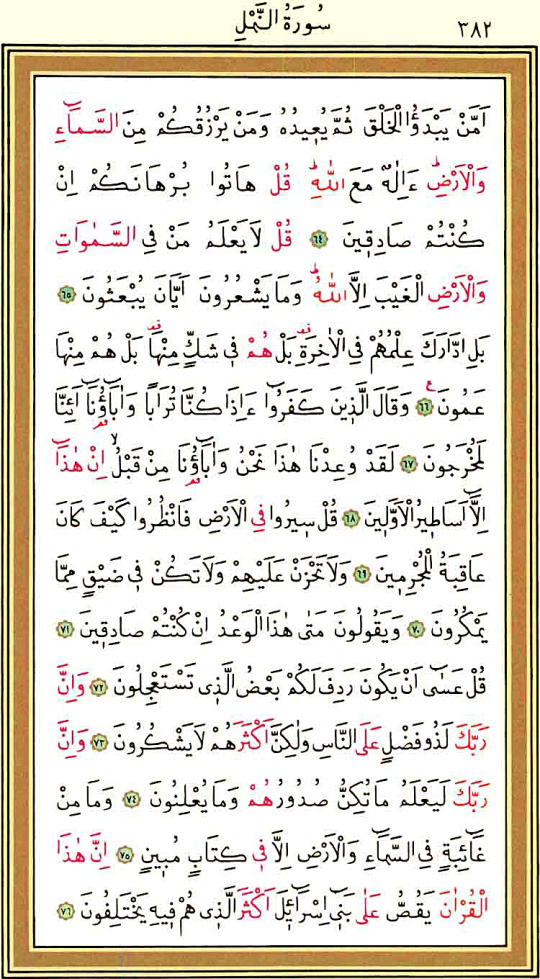 سُورَةُ النَّمْلِ
٣٨٢
اَمَّنْ يَبْدَؤُا الْخَلْقَ ثُمَّ يُعِيدُهُ وَمَنْ يَرْزُقُكُمْ مِنَ السَّمَٓاءِ
وَالْاَرْضِۜ ءَاِلٰهٌ مَعَ اللّٰهِۜ قُلْ هَاتُوا بُرْهَانَكُمْ اِنْ
كُنْتُمْ صَادِقِينَ ﴿٦٤﴾ قُلْ لَا يَعْلَمُ مَنْ فِي السَّمٰوَاتِ
وَالْاَرْضِ الْغَيْبَ اِلَّا اللّٰهُۜ وَمَا يَشْعُرُونَ اَيَّانَ يُبْعَثُونَ ﴿٦٥﴾
بَلِ ادَّارَكَ عِلْمُهُمْ فِي الْاٰخِرَةِ۠ بَلْ هُمْ فِي شَكٍّ مِنْهَا۠ بَلْ هُمْ مِنْهَا
عَمُونَ ﴿٦٦﴾ وَقَالَ الَّذِينَ كَفَرُٓوا ءَاِذَا كُنَّا تُرَاباً وَاٰبَٓاؤُ۬نَٓا اَئِنَّا
لَمُخْرَجُونَ ﴿٦٧﴾ لَقَدْ وُعِدْنَا هٰذَا نَحْنُ وَاٰبَٓاؤُ۬نَا مِنْ قَبْلُۙ اِنْ هٰذَٓا
اِلَّٓا اَسَاطِيرُ الْاَوَّلِينَ ﴿٦٨﴾ قُلْ سِيرُوا فِي الْاَرْضِ فَانْظُرُوا كَيْفَ كَانَ
عَاقِبَةُ الْمُجْرِمِينَ ﴿٦٩﴾ وَلَا تَحْزَنْ عَلَيْهِمْ وَلَا تَكُنْ فِي ضَيْقٍ مِمَّا
يَمْكُرُونَ ﴿٧٠﴾ وَيَقُولُونَ مَتٰى هٰذَا الْوَعْدُ اِنْ كُنْتُمْ صَادِقِينَ ﴿٧١﴾
قُلْ عَسٰٓى اَنْ يَكُونَ رَدِفَ لَكُمْ بَعْضُ الَّذِي تَسْتَعْجِلُونَ ﴿٧٢﴾ وَاِنَّ
رَبَّكَ لَذُو فَضْلٍ عَلَى النَّاسِ وَلٰكِنَّ اَكْثَرَهُمْ لَا يَشْكُرُونَ ﴿٧٣﴾ وَاِنَّ
رَبَّكَ لَيَعْلَمُ مَا تُكِنُّ صُدُورُهُمْ وَمَا يُعْلِنُونَ ﴿٧٤﴾ وَمَا مِنْ
غَٓائِبَةٍ فِي السَّمَٓاءِ وَالْاَرْضِ اِلَّا فِي كِتَابٍ مُبِينٍ ﴿٧٥﴾ اِنَّ هٰذَا
الْقُرْاٰنَ يَقُصُّ عَلٰى بَنِٓي اِسْرَٓائِلَ اَكْثَرَ الَّذِي هُمْ فِيهِ يَخْتَلِفُونَ ﴿٧٦﴾